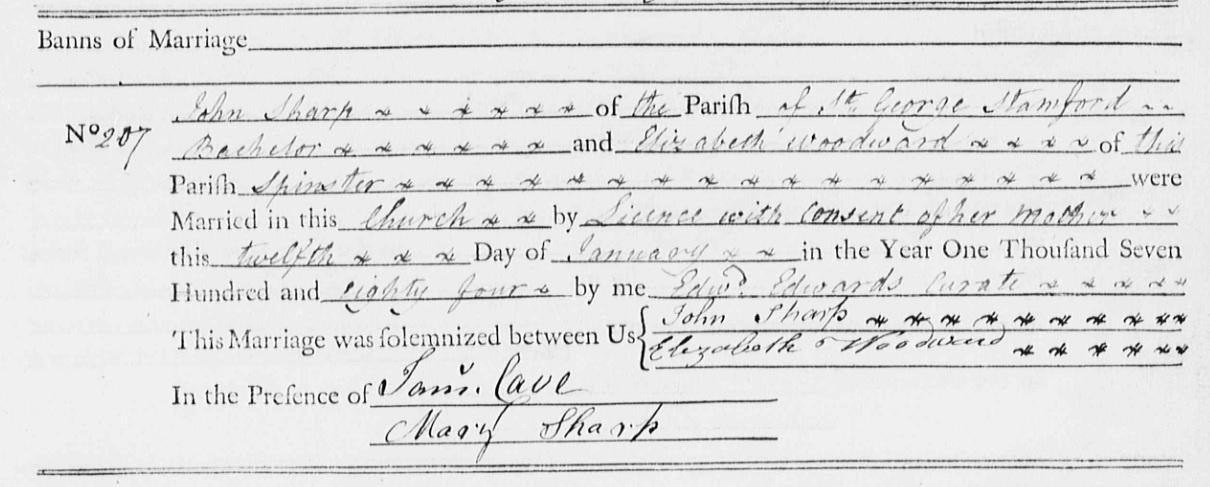 Banns of Marriage
Nº 207 John Sharp of the Pariſh of St. George Stamford
Bachelor and Elizabeth Woodward of this
Pariſh Spinster were
Married in this Church by Licence with Consent of her Mother
this twelfth Day of January in the Year One Thouſand Seven
Hundred and eighty four by me Edwd. Edwards Curate
This Marriage was ſolemnized between Us John Sharp
Elizabeth Woodward
In the Preſence of Cave
Mary Sharp